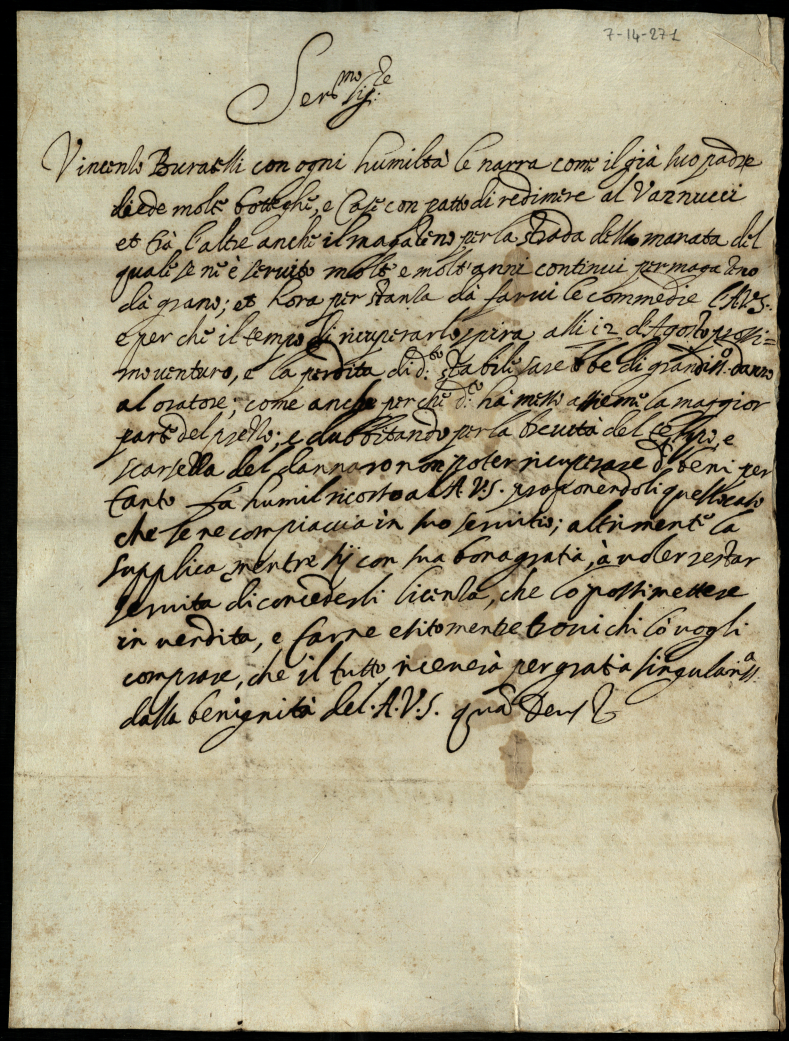 7-14-271
Ser.mo Sig.re
Vincenzo Buratti con ogni humiltà le narra come il già suo padre
diede molte botteghe, e Case con patto di redimere al Vannucci
et trà l'altre anche il magazeno per la strada della manata del
quale se ne è servito molti e molt'anni continui per magazeno
dà grano; et hora per stanza dà farvi le commedie l'A.V.S.
e perche il tempo di ricuperarlo spira alli 12 d'Agosto prossi=
mo venturo, e la perdita di d.i stabili sarebbe di grandiss.o danno
al oratore; come anche perche d.o hà messo assieme la maggior
parte del prezzo; e dubbitando per la brevità del tempo, e
scarsezza del dannaro non poter ricuperare d.i beni per
tanto fà humil ricorso al A.V.S. proponendoli quello caso
che se ne compiaccia in suo servitio; altrimente la
supplica mentre sij con sua bona gratia, à voler restar
servita di concederli licenza, che lo possi mettere
in vendita, e farne esito mentre trovi chi lo vogli
comprare, che il tutto riceverà per gratia singularis.a
dalla benignità del A.V.S. quam Deus